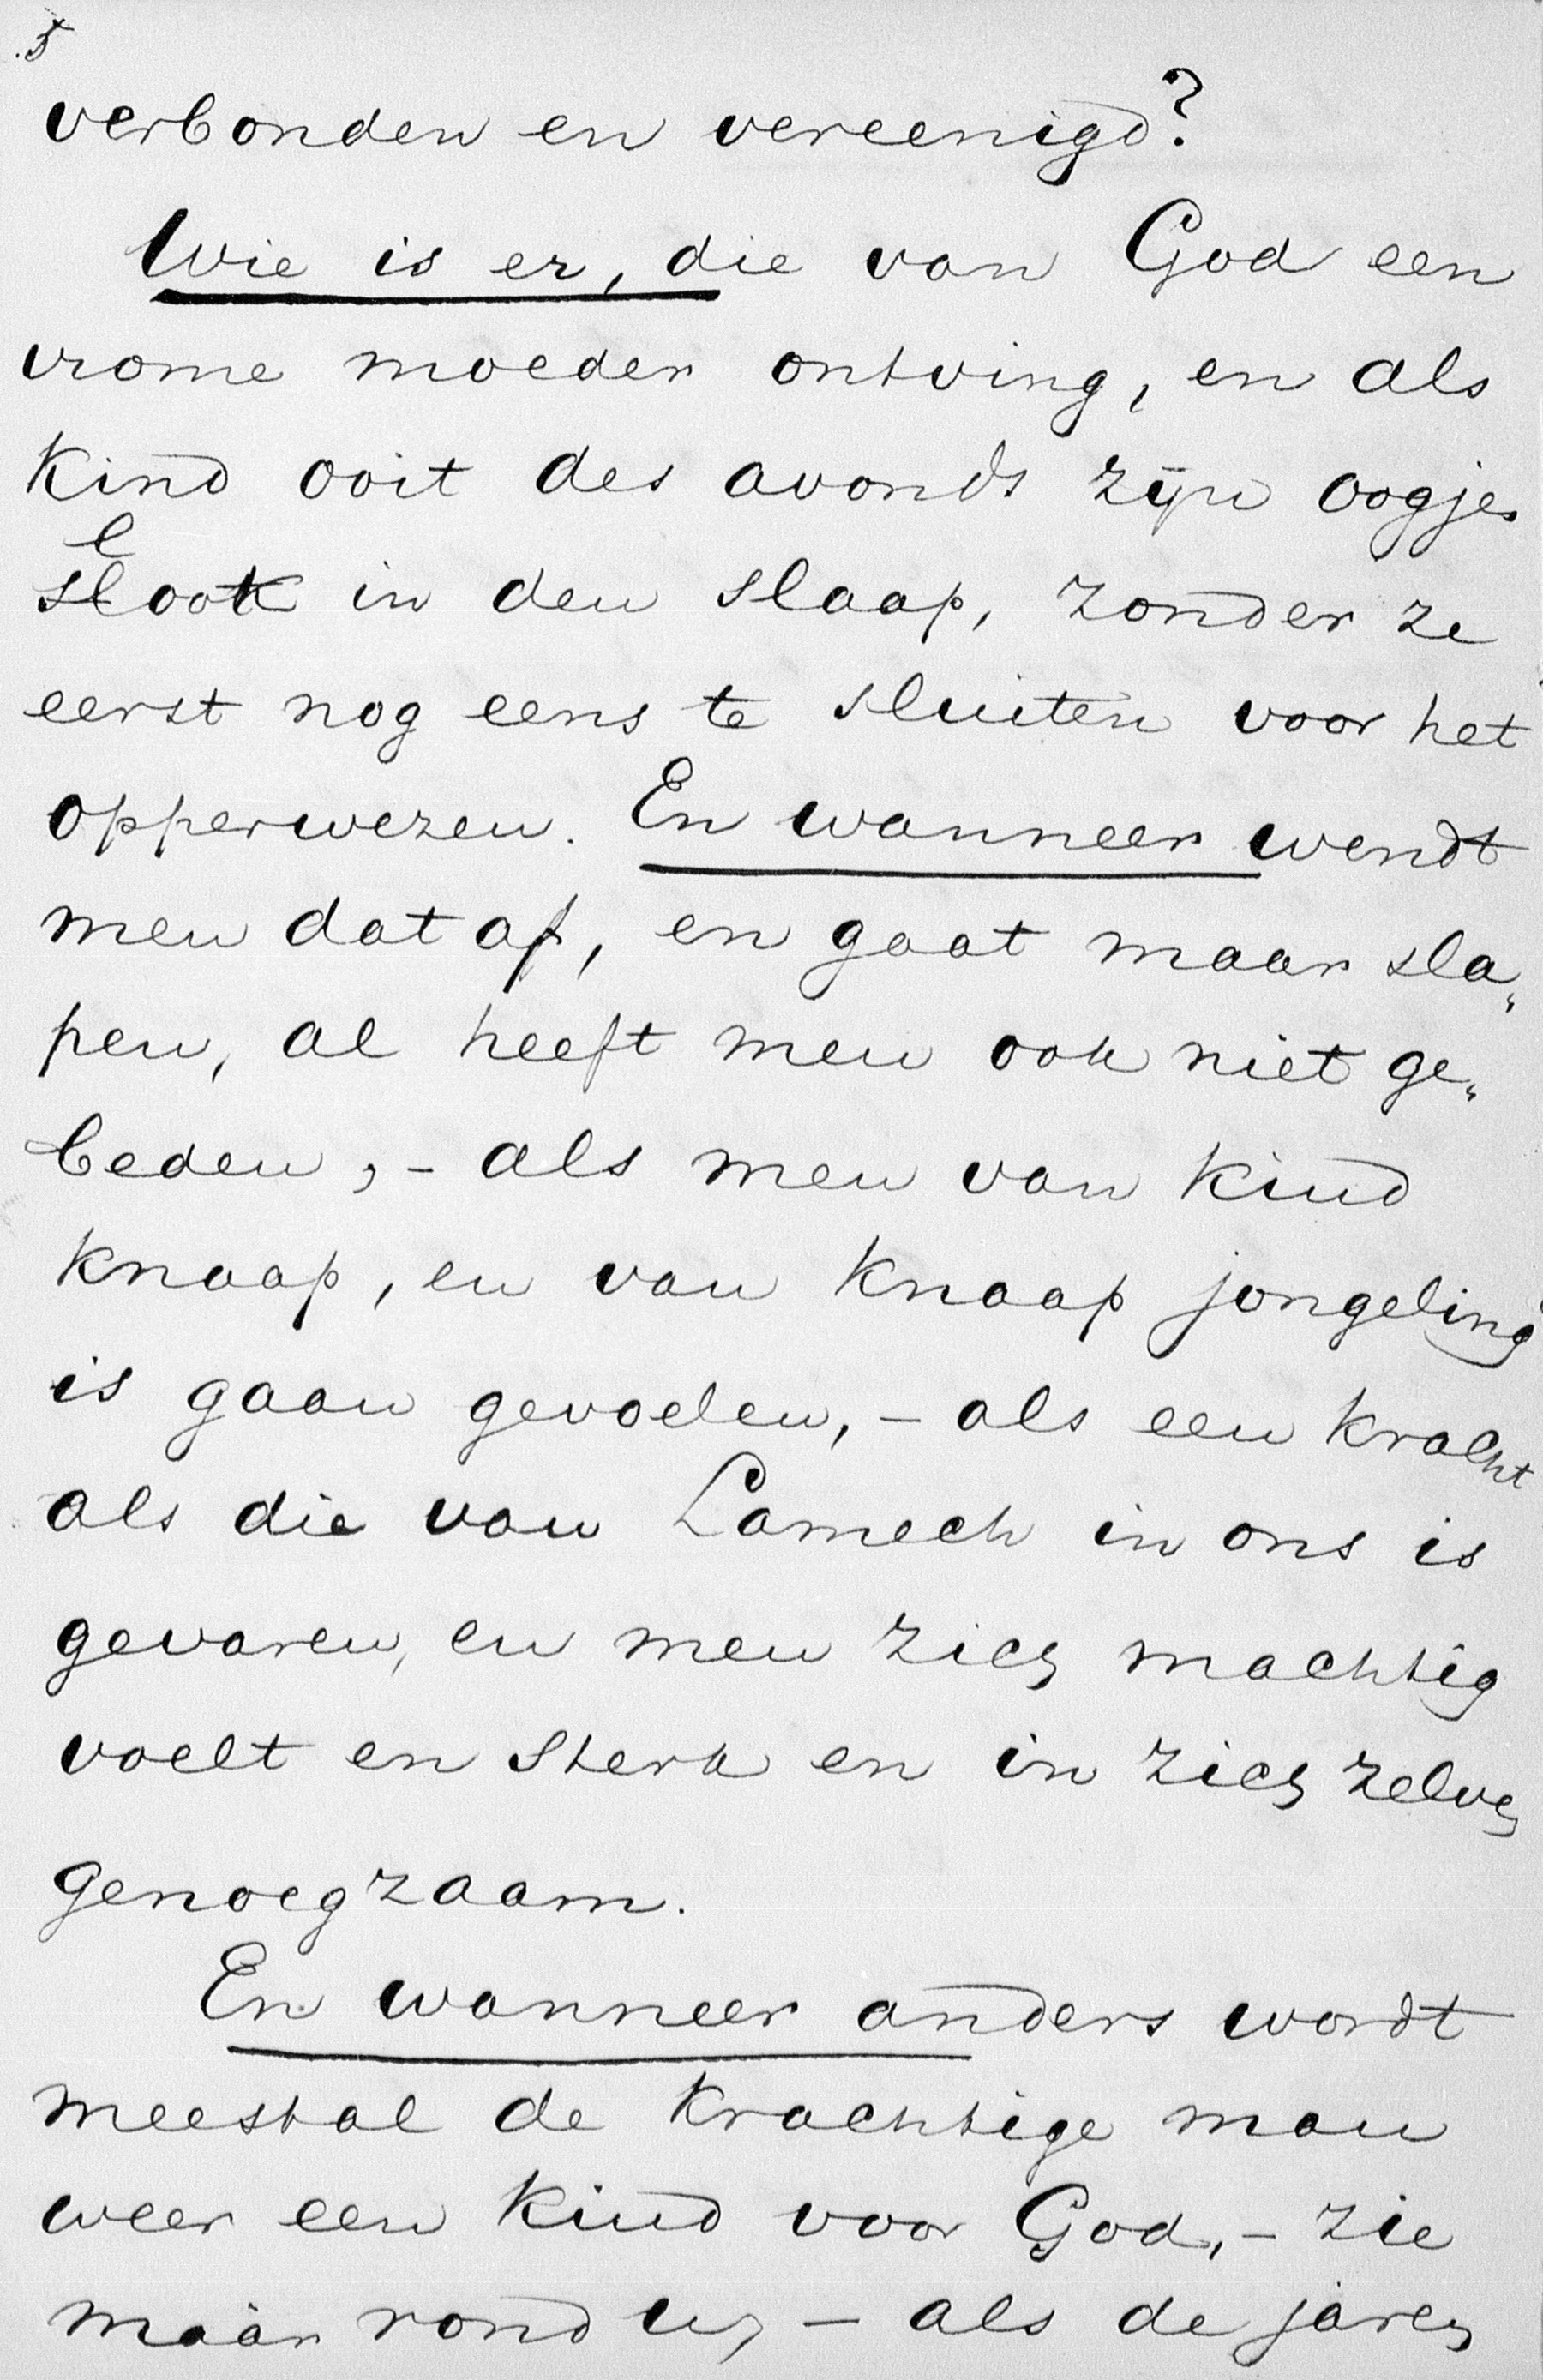 5
verbonden en vereenigd?
Wie is er, die van God een
vrome moeder ontving, en als
Kind ooit des avonds zijn oogjes
slook in den slaap, zonder ze
eerst nog eens te sluiten voor het
opperwezen. En wanneer wendt
men dat af, en gaat maar sla„
pen, al heeft men ook niet ge„
beden, – als men van kind
knaap, en van knaap jongeling
is gaan gevoelen, – als een kracht
als die van Lamech in ons is
gevaren, en men zich machtig
voelt en sterk en in zich zelven
genoegzaam.
En wanneer anders wordt
meestal de krachtige man
weer een kind voor God, – zie
máár rond u, – als de jaren